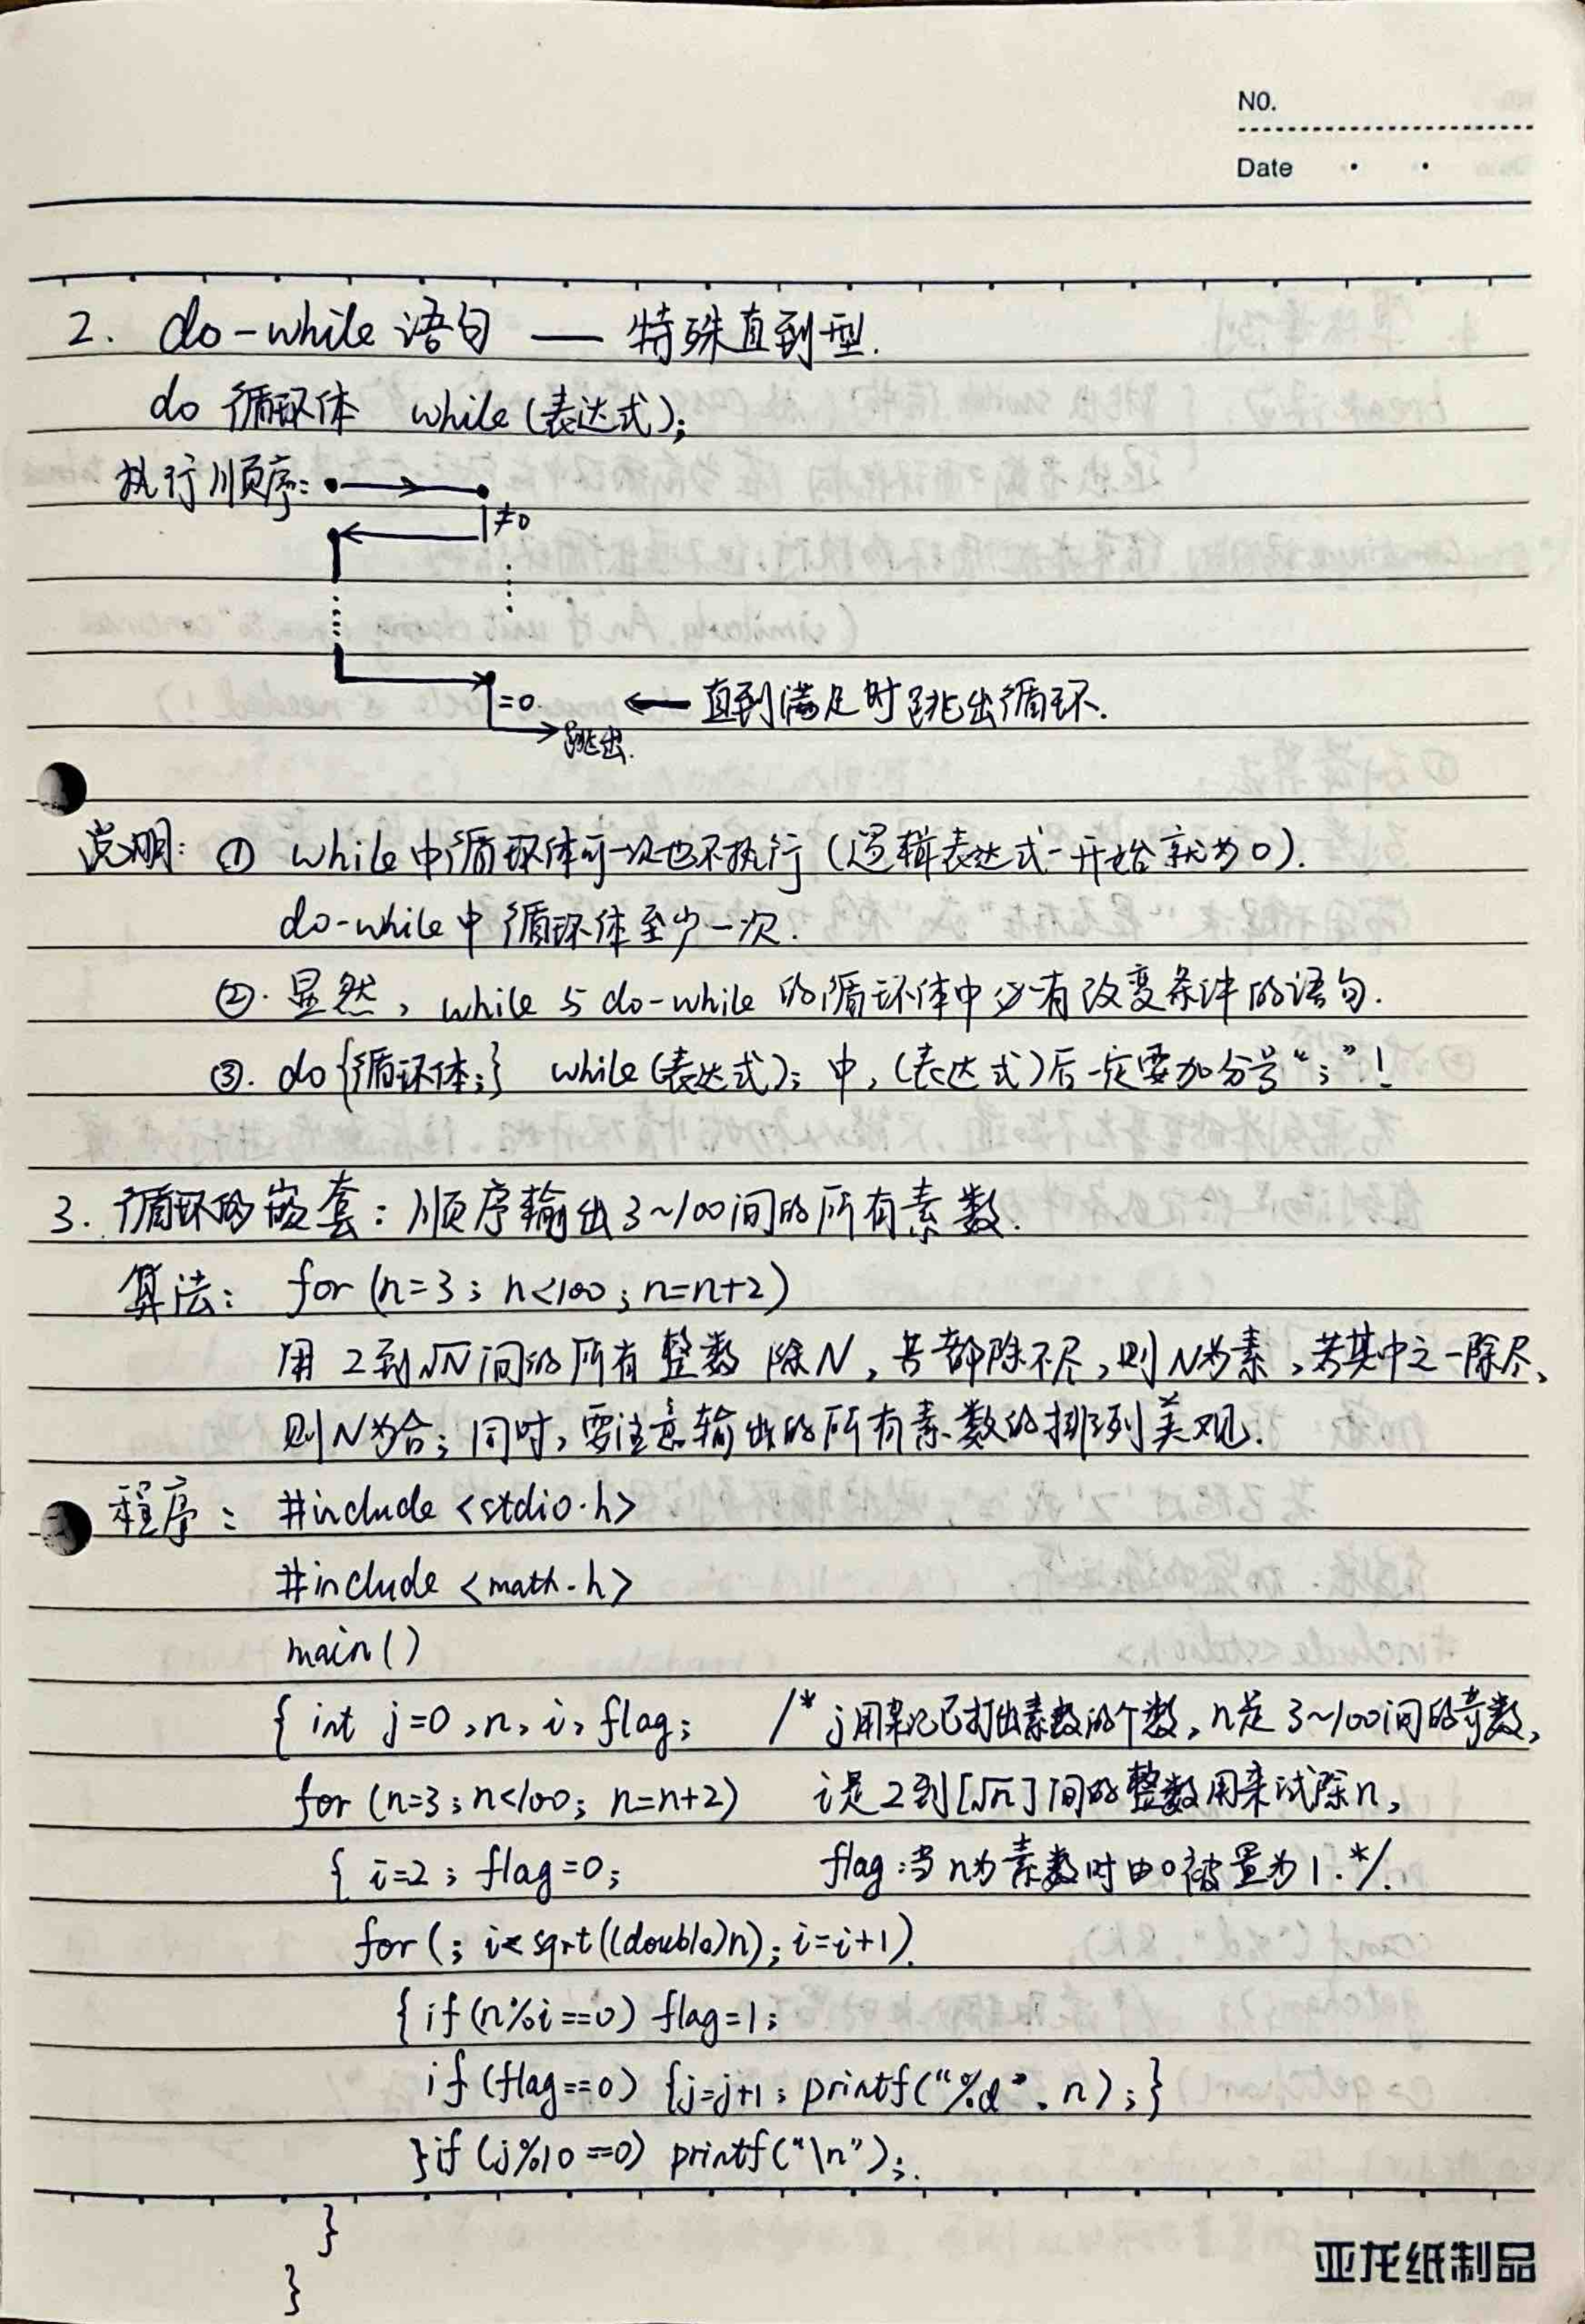 NO.
Date
2. do-while 语句 —— 特殊直到型.
do 循环体 while(表达式);
执行顺序:
≠0
=0. ← 直到满足时跳出循环.
跳出.
说明: ① while中循环体可一次也不执行 (逻辑表达式一开始就为0).
do-while中循环体至少一次.
②. 显然, while与do-while的循环体中必有改变条件的语句.
③. do{循环体;} while(表达式); 中, (表达式)后一定要加分号“;”!
3. 循环的嵌套: 顺序输出3~100间的所有素数.
算法: for (n=3; n<100; n=n+2)
用2到√N间的所有整数除N, 若都除不尽, 则N为素, 若其中之一除尽、
则N为合; 同时, 要注意输出的所有素数的排列美观.
程序: #include <stdio.h>
#include <math.h>
main()
{ int j=0, n, i, flag; /* j用来记已打出素数的个数, n是3~100间的奇数,
for (n=3; n<100; n=n+2) i是2到[√n]间的整数用来试除n,
{ i=2; flag=0; flag:当n为素数时由0被置为1.*/.
for(; i< sqrt((double)n); i=i+1).
{ if(n%i==0) flag=1;
if (flag==0) {j=j+1; printf("%d", n);}
}if (j%10==0) printf("\n");.
}
}
亚龙纸制品